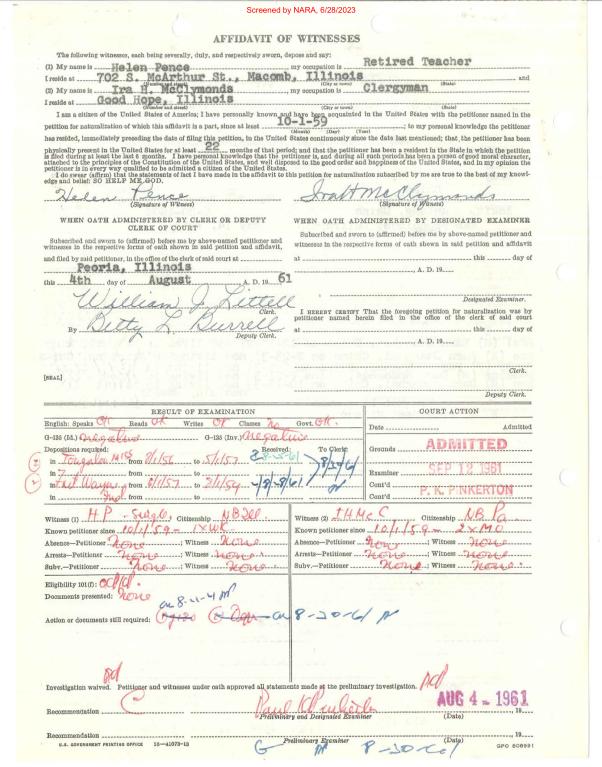 Screened by NARA, 6/28/2023
AFFIDAVIT OF WITNESSES
The following witnesses, each being severally, duly, and respectively sworn, depose and say:
(1) My name is Helen Pence my occupation is Retired Teacher
I reside at 702 S. McArthur St., Macomb, Illinois and
(Number and street) (City or town) (State)
(2) My name is Ira H. McClymonds my occupation is Clergyman
I reside at Good Hope, Illinois
(Number and street) (City or town) (State)
I am a citizen of the United States of America; I have personally known and have been acquainted in the United States with the petitioner named in the
petition for naturalization of which this affidavit is a part, since at least 10-1-59; to my personal knowledge the petitioner
(Month) (Day) (Year)
has resided, immediately preceding the date of filing this petition, in the United States continuously since the date last mentioned; that, the petitioner has been
physically present in the United States for at least 22 months of that period; and that the petitioner has been a resident of the State in which the petition
is filed during at least the last 6 months. I have personal knowledge that the petitioner is, and during all such periods has been a person of good moral character,
attached to the principles of the Constitution of the United States, and well disposed to the good order and happiness of the United States, and in my opinion the
petitioner is in every way qualified to be admitted a citizen of the United States.
I do swear (affirm) that the statements of fact I have made in the affidavit to this petition for naturalization subscribed by me are true to the best of my knowl-
edge and belief: SO HELP ME GOD.
Helen Pence Ira H McClymonds
(Signature of Witness) (Signature of Witness)
WHEN OATH ADMINISTERED BY CLERK OR DEPUTY
CLERK OF COURT
Subscribed and sworn to (affirmed) before me by above-named petitioner and
witnesses in the respective forms of oath shown in said petition and affidavit,
and filed by said petitioner, in the office of the clerk of said court at
Peoria, Illinois
this 4th day of August A. D. 19 61
William J Littell
Clerk.
By Betty L Burrell
Deputy Clerk.
[SEAL]
WHEN OATH ADMINISTERED BY DESIGNATED EXAMINER
Subscribed and sworn to (affirmed) before me by above-named petitioner and
witnesses in the respective forms of oath shown in said petition and affidavit
at this day of
A. D. 19
Designated Examiner.
I HEREBY CERTIFY That the foregoing petition for naturalization was by
petitioner named herein filed in the office of the clerk of said court
at this day of
A. D. 19
Clerk.
Deputy Clerk.
RESULT OF EXAMINATION
English: Speaks OK Reads OK Writes OK Claims No Govt. OK.
G-135 (Id.) Negative G-135 (Inv.) Negative
Depositions required: Received: To Clerk:
in Tougaloo Miss from 9/1/56 to 5/1/57 8-25-61 8/30/61
in from to
in Fort Wayne from 6/1/57 to 8/8/61
in Ind from to
COURT ACTION
Date Admitted
Grounds ADMITTED
Examiner SEP 12 1961
Cont'd
Cont'd P. K. PINKERTON
Witness (1) H P Citizenship
Known petitioner since 10/1/59 - 1XWK
Absence—Petitioner None; Witness None
Arrests—Petitioner None; Witness None
Subv.—Petitioner None; Witness None
Witness (2) I H Mc C Citizenship NB Pa
Known petitioner since 10/1/59 - 2XMO
Absence—Petitioner None; Witness None
Arrests—Petitioner None; Witness None
Subv.—Petitioner None; Witness None
Eligibility 101(f):
Documents presented: None
Action or documents still required: 8-30-61
Investigation waived. Petitioner and witnesses under oath approved all statements made at the preliminary investigation.
Recommendation AUG 4 - 1961 19
Preliminary and Designated Examiner (Date)
Recommendation 19
Preliminary Examiner 8-30-61 (Date)
U.S. GOVERNMENT PRINTING OFFICE 16—41073-13 GPO 808931